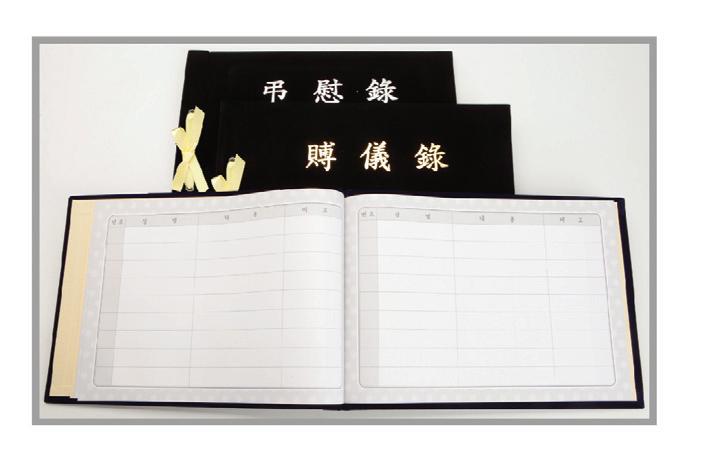 弔慰錄
賻儀錄
번호 성 명 내 용 비 고
번호 성 명 내 용 비 고